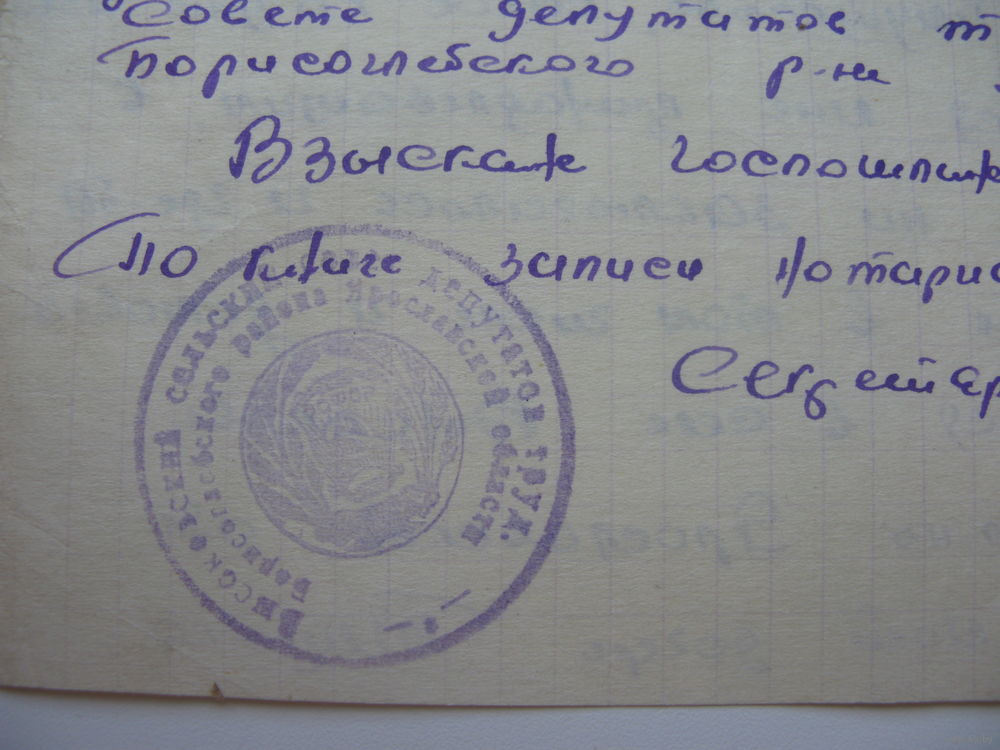 Совете депутатов т
Борисоглебского р-на
Взыскана госпошлина
По книге записи нотариа
Секретар
Высоковский сельский совет депутатов труд.
Борисоглебского района Ярославской области